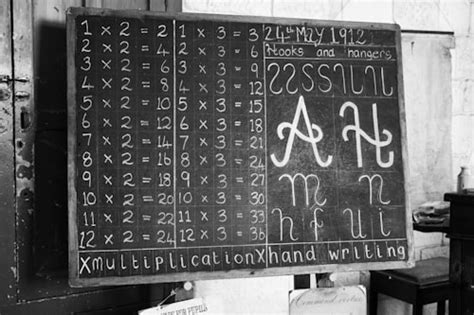 1 × 2 = 2
2 × 2 = 4
3 × 2 = 6
4 × 2 = 8
5 × 2 = 10
6 × 2 = 12
7 × 2 = 14
8 × 2 = 16
9 × 2 = 18
10 × 2 = 20
11 × 2 = 22
12 × 2 = 24
1 × 3 = 3
2 × 3 = 6
3 × 3 = 9
4 × 3 = 12
5 × 3 = 15
6 × 3 = 18
7 × 3 = 21
8 × 3 = 24
9 × 3 = 27
10 × 3 = 30
11 × 3 = 33
12 × 3 = 36
24th MAY 1912
Hooks and hangers
A H
m n
h f u i
X multiplication X hand writing
FOR PUPILS